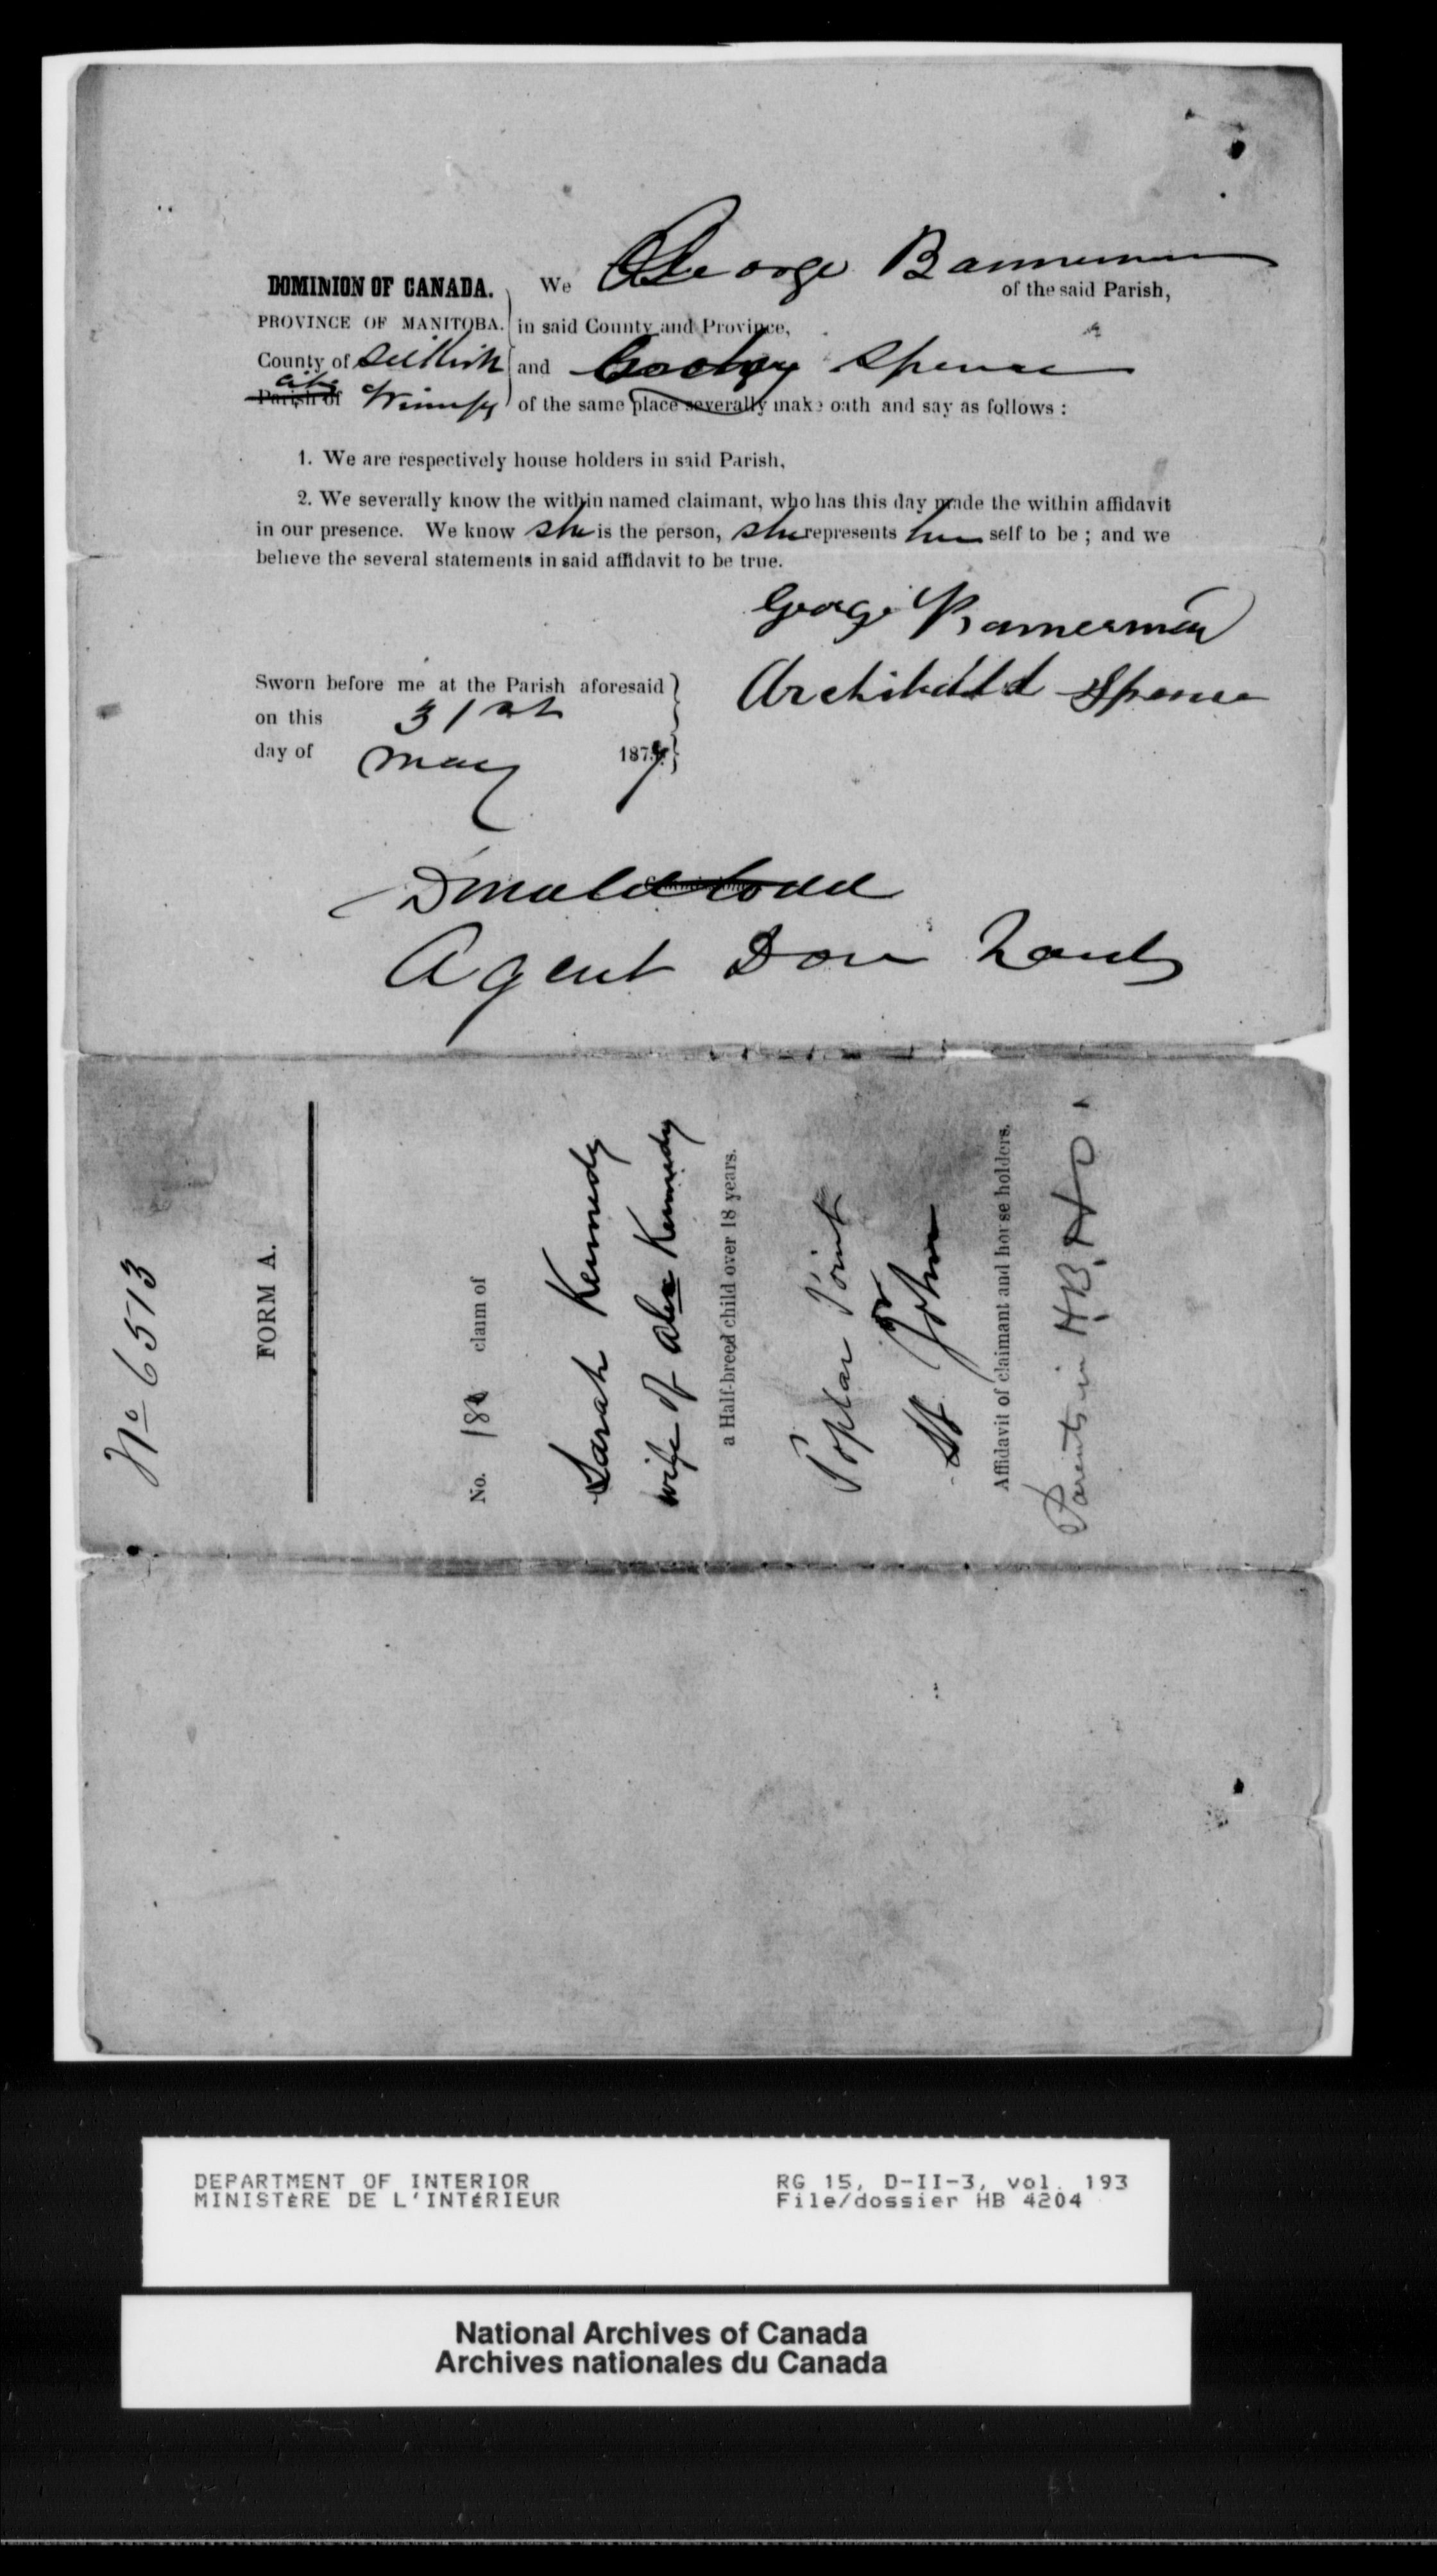 We George Bannerman
DOMINION OF CANADA. of the said Parish,
PROVINCE OF MANITOBA. in said County and Province,
County of Selkirk and Spence
City
Parish of Winnipeg of the same place severally make oath and say as follows :
1. We are respectively house holders in said Parish,
2. We severally know the within named claimant, who has this day made the within affidavit
in our presence. We know she is the person, she represents her self to be ; and we
believe the several statements in said affidavit to be true.
George Bannerman
Archibald Spence
Sworn before me at the Parish aforesaid
on this 31st
day of May 187
Donald Codd
Agent Dom Lands
No 6513
FORM A.
No. claim of
Sarah Kennedy
wife of Alex Kennedy
a Half-breed child over 18 years.
Poplar Point
or
St John
Affidavit of claimant and house holders.
Parents in H.B.
DEPARTMENT OF INTERIOR
MINISTÈRE DE L'INTÉRIEUR
RG 15, D-II-3, vol. 193
File/dossier HB 4204
National Archives of Canada
Archives nationales du Canada